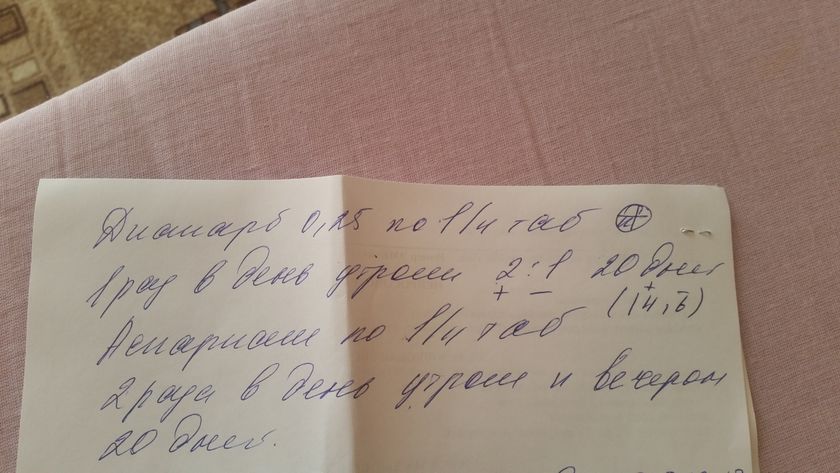 Диакарб 0,25 по 1/4 таб
1 раз в день утром 2:1 20 дней
+ −
Аспаркам по 1/4 таб
2 раза в день утром и вечером
20 дней.